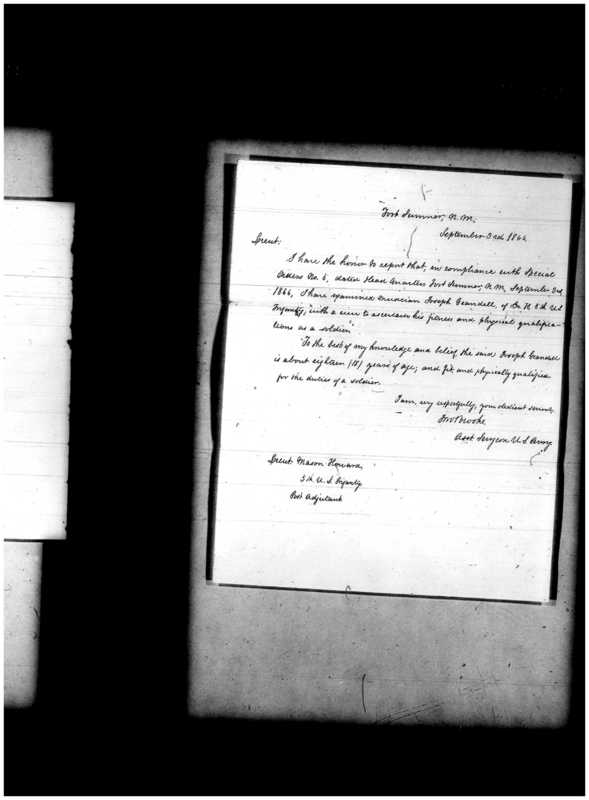 Fort Sumner, N.M.
September 3rd 1866
Lieut:
I have the honor to report that, in compliance with Special
Orders No. 5, dated Head Quarters Fort Sumner, N.M. September 3rd
1866, I have examined Musician Joseph of Co H 5th U.S.
Infantry, "with a view to ascertain his fitness and physical qualifica-
tions as a soldier."
To the best of my knowledge and belief, the said Joseph
is about eighteen (18) years of age; and fit and physically qualified
for the duties of a soldier.
I am, very respectfully, your obedient servant,
Brooke
Asst Surgeon U S Army
Lieut Mason Howard,
5th U.S. Infantry
Post Adjutant